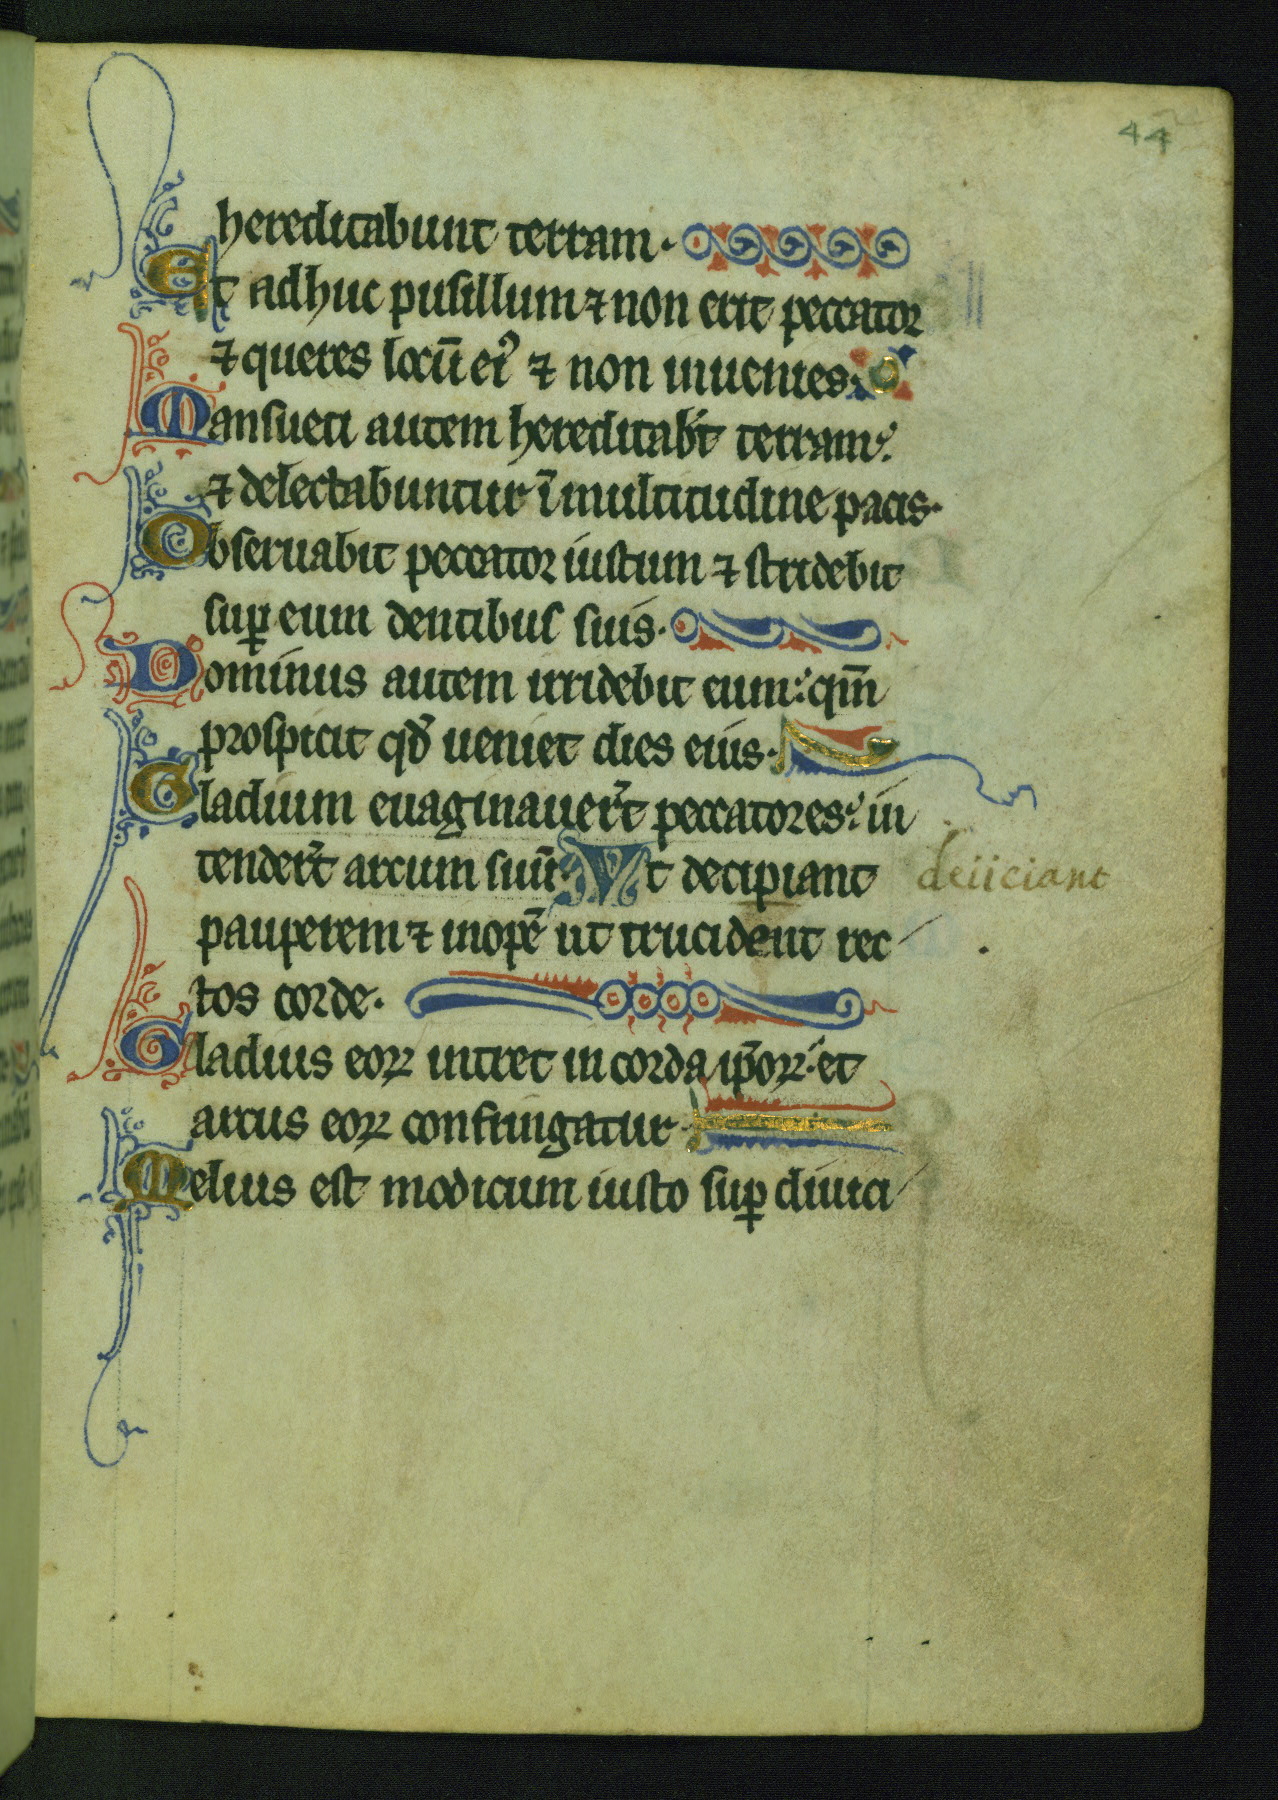 44
hereditabunt terram.
Et adhuc pusillum ⁊ non erit peccator
⁊ queres locū ei⁹ ⁊ non inuenies.
Mansueti autem hereditab̄t terram:
⁊ delectabuntur ī multitudine pacis.
Obseruabit peccator iustum ⁊ stridebit
suꝑ eum dentibus suis.
Dominus autem irridebit eum: qm̄
prospicit qd̄ ueniet dies eius.
Gladium euaginauer̄t peccatores: in
tender̄t arcum suū: Vt decipiant
deiiciant
pauperem ⁊ inopē ut trucident rec
tos corde.
Gladius eoꝝ intret in corda ip̄oꝝ: et
arcus eoꝝ confringatur.
Melius est modicum iusto suꝑ diuici